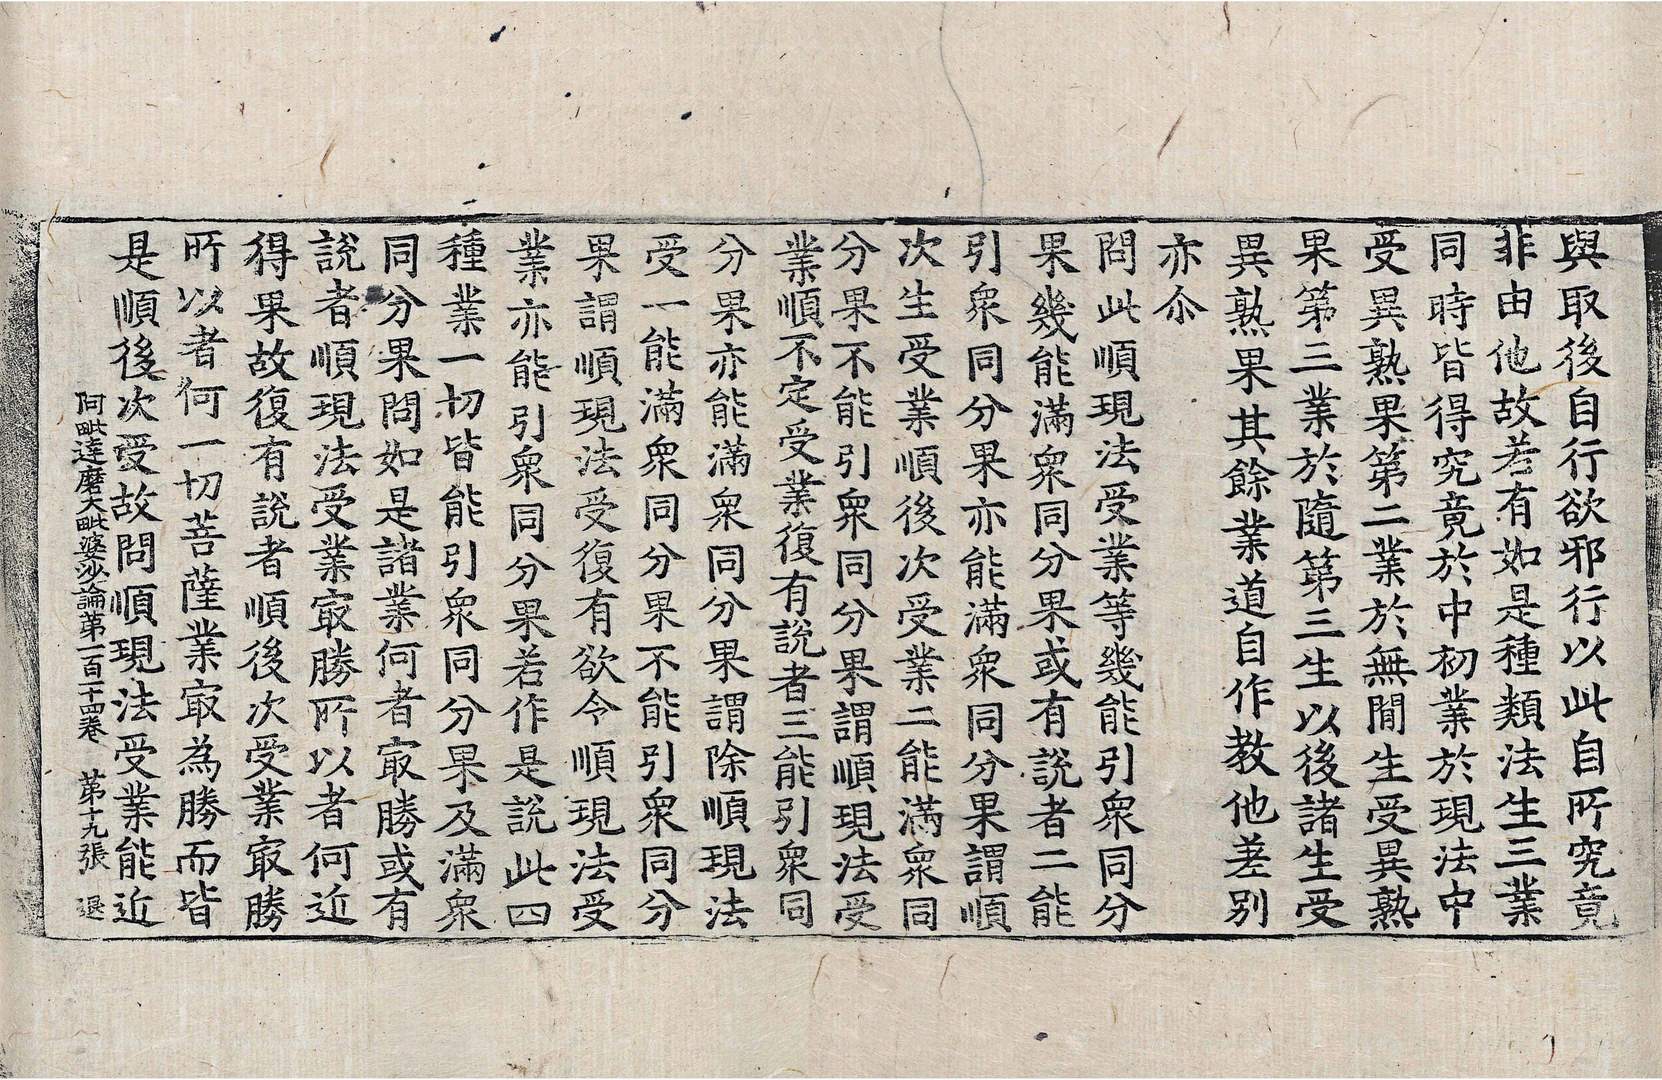 與取後自行欲邪行以此自所究竟
非由他故若有如是種類法生三業
同時皆得究竟於中初業於現法中
受異熟果第二業於無間生受異熟
果第三業於隨第三生以後諸生受
異熟果其餘業道自作教他差別
亦尒
問此順現法受業等幾能引衆同分
果幾能滿衆同分果或有說者二能
引衆同分果亦能滿衆同分果謂順
次生受業順後次受業二能滿衆同
分果不能引衆同分果謂順現法受
業順不定受業復有說者三能引衆同
分果亦能滿衆同分果謂除順現法
受一能滿衆同分果不能引衆同分
果謂順現法受復有欲令順現法受
業亦能引衆同分果若作是說此四
種業一切皆能引衆同分果及滿衆
同分果問如是諸業何者㝡勝或有
說者順現法受業㝡勝所以者何近
得果故復有說者順後次受業㝡勝
所以者何一切菩薩業㝡為勝而皆
是順後次受故問順現法受業能近
阿毗達磨大毗婆沙論第一百十四卷 第十九張 退